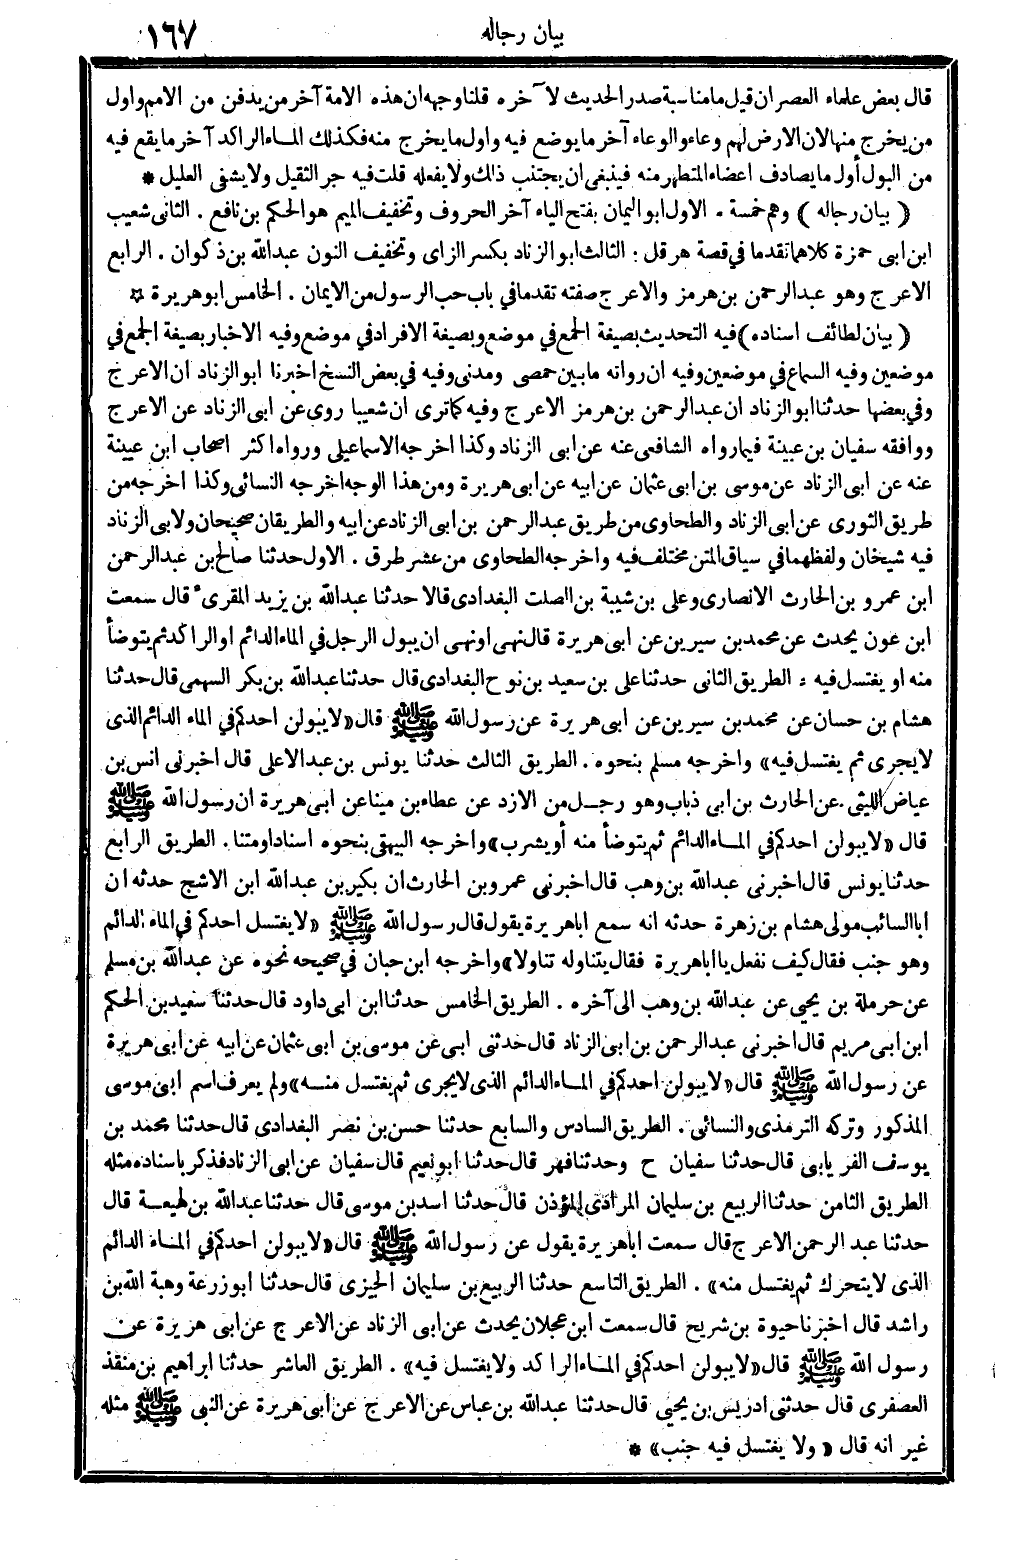 بيان رجاله
١٦٧
قال بعض علماء العصر ان قيل ما مناسبة صدر الحديث لآخره قلنا وجهه ان هذه الامة آخر من يدفن من الامم واول
من يخرج منها لان الارض لهم وعاء والوعاء آخر ما يوضع فيه واول ما يخرج منه فكذلك الماء الراكد آخر ما يقع فيه
من البول أول ما يصادف اعضاء المتطهر منه فينبغى ان يجتنب ذلك ولا يفعله قلت فيه جر الثقيل ولا يشفى العليل *
( بيان رجاله ) وهم خمسة . الاول ابو اليمان بفتح الياء آخر الحروف وتخفيف الميم هو الحكم بن نافع . الثانى شعيب
ابن ابى حمزة كلاهما تقدما فى قصة هرقل : الثالث ابو الزناد بكسر الزاى وتخفيف النون عبدالله بن ذكوان . الرابع
الاعرج وهو عبدالرحمن بن هرمز والاعرج صفته تقدما فى باب حب الرسول من الايمان . الخامس ابو هريرة ☆
( بيان لطائف اسناده ) فيه التحديث بصيغة الجمع فى موضع وبصيغة الافراد فى موضع وفيه الاخبار بصيغة الجمع فى
موضعين وفيه السماع فى موضعين وفيه ان رواته ما بين حمصى ومدنى وفيه فى بعض النسخ اخبرنا ابو الزناد ان الاعرج
وفى بعضها حدثنا ابو الزناد ان عبدالرحمن بن هرمز الاعرج وفيه كما ترى ان شعيبا روى عن ابى الزناد عن الاعرج
ووافقه سفيان بن عيينة فيما رواه الشافعى عنه عن ابى الزناد وكذا اخرجه الاسماعيلى ورواه اكثر اصحاب ابن عيينة
عنه عن ابى الزناد عن موسى بن ابى عثمان عن ابيه عن ابى هريرة ومن هذا الوجه اخرجه النسائى وكذا اخرجه من
طريق الثورى عن ابى الزناد والطحاوى من طريق عبدالرحمن بن ابى الزناد عن ابيه والطريقان صحيحان ولابى الزناد
فيه شيخان ولفظهما فى سياق المتن مختلف فيه واخرجه الطحاوى من عشر طرق . الاول حدثنا صالح بن عبدالرحمن
ابن عمرو بن الحارث الانصارى وعلى بن شيبة بن الصلت البغدادى قالا حدثنا عبدالله بن يزيد المقرىء قال سمعت
ابن عون يحدث عن محمد بن سيرين عن ابى هريرة قال نهى او نهى ان يبول الرجل فى الماء الدائم او الراكد ثم يتوضأ
منه او يغتسل فيه : الطريق الثانى حدثنا على بن سعيد بن نوح البغدادى قال حدثنا عبدالله بن بكر السهمى قال حدثنا
هشام بن حسان عن محمد بن سيرين عن ابى هريرة عن رسول الله ﷺ قال «لا يبولن احدكم فى الماء الدائم الذى
لا يجرى ثم يغتسل فيه» واخرجه مسلم بنحوه . الطريق الثالث حدثنا يونس بن عبدالاعلى قال اخبرنى انس بن
عياض الليثى عن الحارث بن ابى ذباب وهو رجل من الازد عن عطاء بن مينا عن ابى هريرة ان رسول الله ﷺ
قال «لا يبولن احدكم فى الماء الدائم ثم يتوضأ منه أو يشرب» واخرجه البيهقى بنحوه اسنادا ومتنا . الطريق الرابع
حدثنا يونس قال اخبرنى عبدالله بن وهب قال اخبرنى عمرو بن الحارث ان بكير بن عبدالله ابن الاشج حدثه ان
ابا السائب مولى هشام بن زهرة حدثه انه سمع اباهريرة يقول قال رسول الله ﷺ «لا يغتسل احدكم فى الماء الدائم
وهو جنب فقال كيف نفعل يا اباهريرة فقال يتناوله تناولا» واخرجه ابن حبان فى صحيحه نحوه عن عبدالله بن مسلم
عن حرملة بن يحيى عن عبدالله بن وهب الى آخره . الطريق الخامس حدثنا ابن ابى داود قال حدثنا سعيد بن الحكم
ابن ابى مريم قال اخبرنى عبدالرحمن بن ابى الزناد قال حدثنى ابى عن موسى بن ابى عثمان عن ابيه عن ابى هريرة
عن رسول الله ﷺ قال «لا يبولن احدكم فى الماء الدائم الذى لا يجرى ثم يغتسل منه» ولم يعرف اسم ابى موسى
المذكور وتركه الترمذى والنسائى . الطريق السادس والسابع حدثنا حسن بن نصر البغدادى قال حدثنا محمد بن
يوسف الفريابى قال حدثنا سفيان ح وحدثنا فهر قال حدثنا ابو نعيم قال سفيان عن ابى الزناد فذكر باسناده مثله
الطريق الثامن حدثنا الربيع بن سليمان المرادى المؤذن قال حدثنا اسد بن موسى قال حدثنا عبدالله بن لهيعة قال
حدثنا عبد الرحمن الاعرج قال سمعت اباهريرة يقول عن رسول الله ﷺ قال «لا يبولن احدكم فى الماء الدائم
الذى لا يتحرك ثم يغتسل منه» . الطريق التاسع حدثنا الربيع بن سليمان الجيزى قال حدثنا ابوزرعة وهبة الله بن
راشد قال اخبرنا حيوة بن شريح قال سمعت ابن عجلان يحدث عن ابى الزناد عن الاعرج عن ابى هريرة عن
رسول الله ﷺ قال «لا يبولن احدكم فى الماء الراكد ولا يغتسل فيه» . الطريق العاشر حدثنا ابراهيم بن منقذ
العصفرى قال حدثنى ادريس بن يحيى قال حدثنا عبدالله بن عباس عن الاعرج عن ابى هريرة عن النبى ﷺ مثله
غير انه قال « ولا يغتسل فيه جنب» *